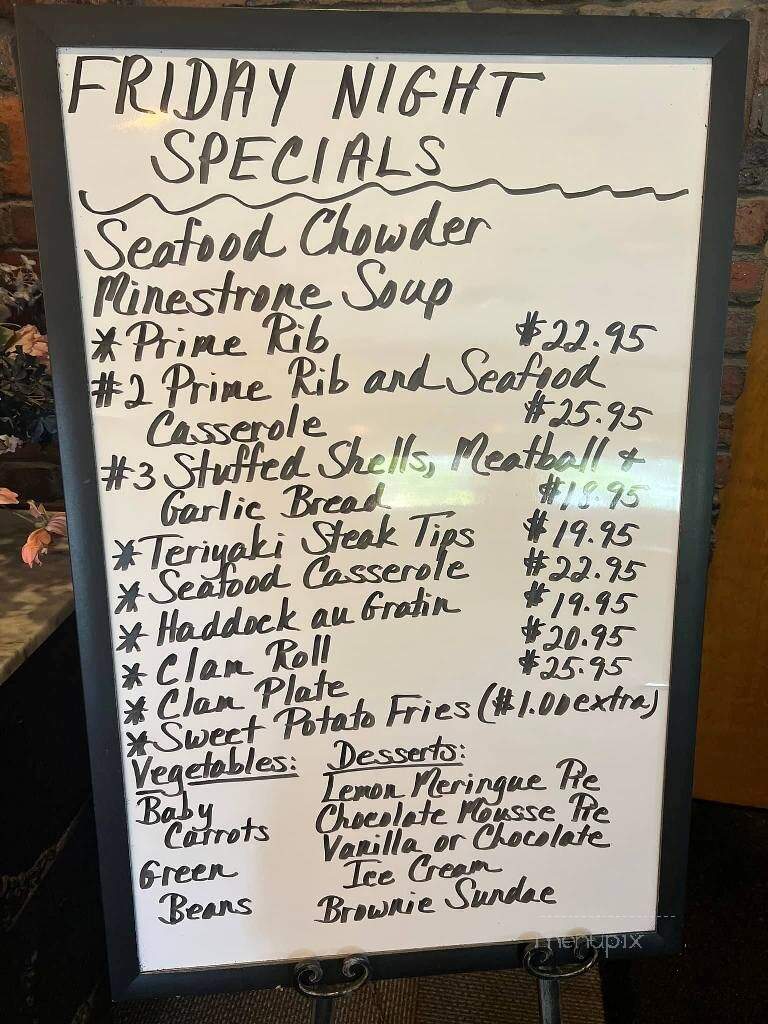 FRIDAY NIGHT
SPECIALS
Seafood Chowder
Minestrone Soup
* Prime Rib $22.95
#2 Prime Rib and Seafood
Casserole $25.95
#3 Stuffed Shells, Meatball &
Garlic Bread $18.95
* Teriyaki Steak Tips $19.95
* Seafood Casserole $22.95
* Haddock au Gratin $19.95
* Clam Roll $20.95
* Clam Plate $25.95
* Sweet Potato Fries ($1.00 extra)
Vegetables:
Baby
Carrots
Green
Beans
Desserts:
Lemon Meringue Pie
Chocolate Mousse Pie
Vanilla or Chocolate
Ice Cream
Brownie Sundae
menupix